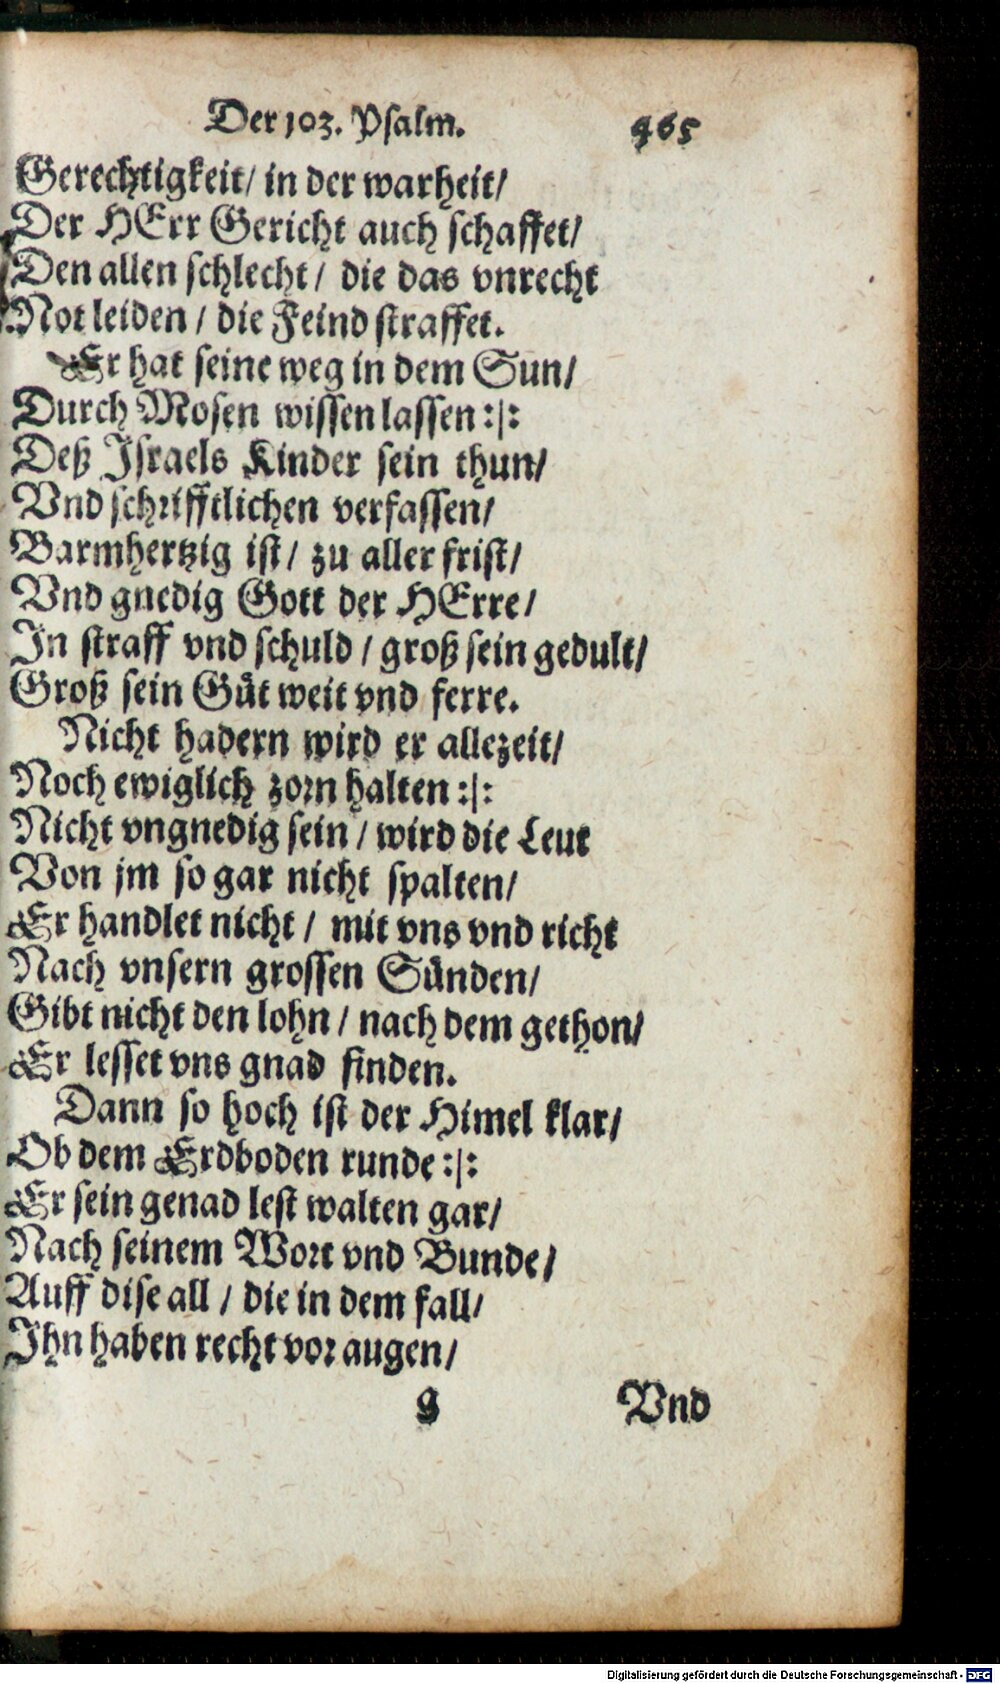 Der 103. Psalm. 465
Gerechtigkeit/ in der warheit/
Der HErr Gericht auch schaffet/
Den allen schlecht/ die das vnrecht
Not leiden/ die Feind straffet.
Er hat seine weg in dem Sun/
Durch Mosen wissen lassen :|:
Deß Israels Kinder sein thun/
Vnd schrifftlichen verfassen/
Barmhertzig ist/ zu aller frist/
Vnd gnedig Gott der HErre/
In straff vnd schuld/ groß sein gedult/
Groß sein Güt weit vnd ferre.
Nicht hadern wird er allezeit/
Noch ewiglich zorn halten :|:
Nicht vngnedig sein/ wird die Leut
Von jm so gar nicht spalten/
Er handlet nicht/ mit vns vnd richt
Nach vnsern grossen Sünden/
Gibt nicht den lohn/ nach dem gethon/
Er lesset vns gnad finden.
Dann so hoch ist der Himel klar/
Ob dem Erdboden runde :|:
Er sein genad lest walten gar/
Nach seinem Wort vnd Bunde/
Auff dise all/ die in dem fall/
Ihn haben recht vor augen/
g Vnd
Digitalisierung gefördert durch die Deutsche Forschungsgemeinschaft - DFG